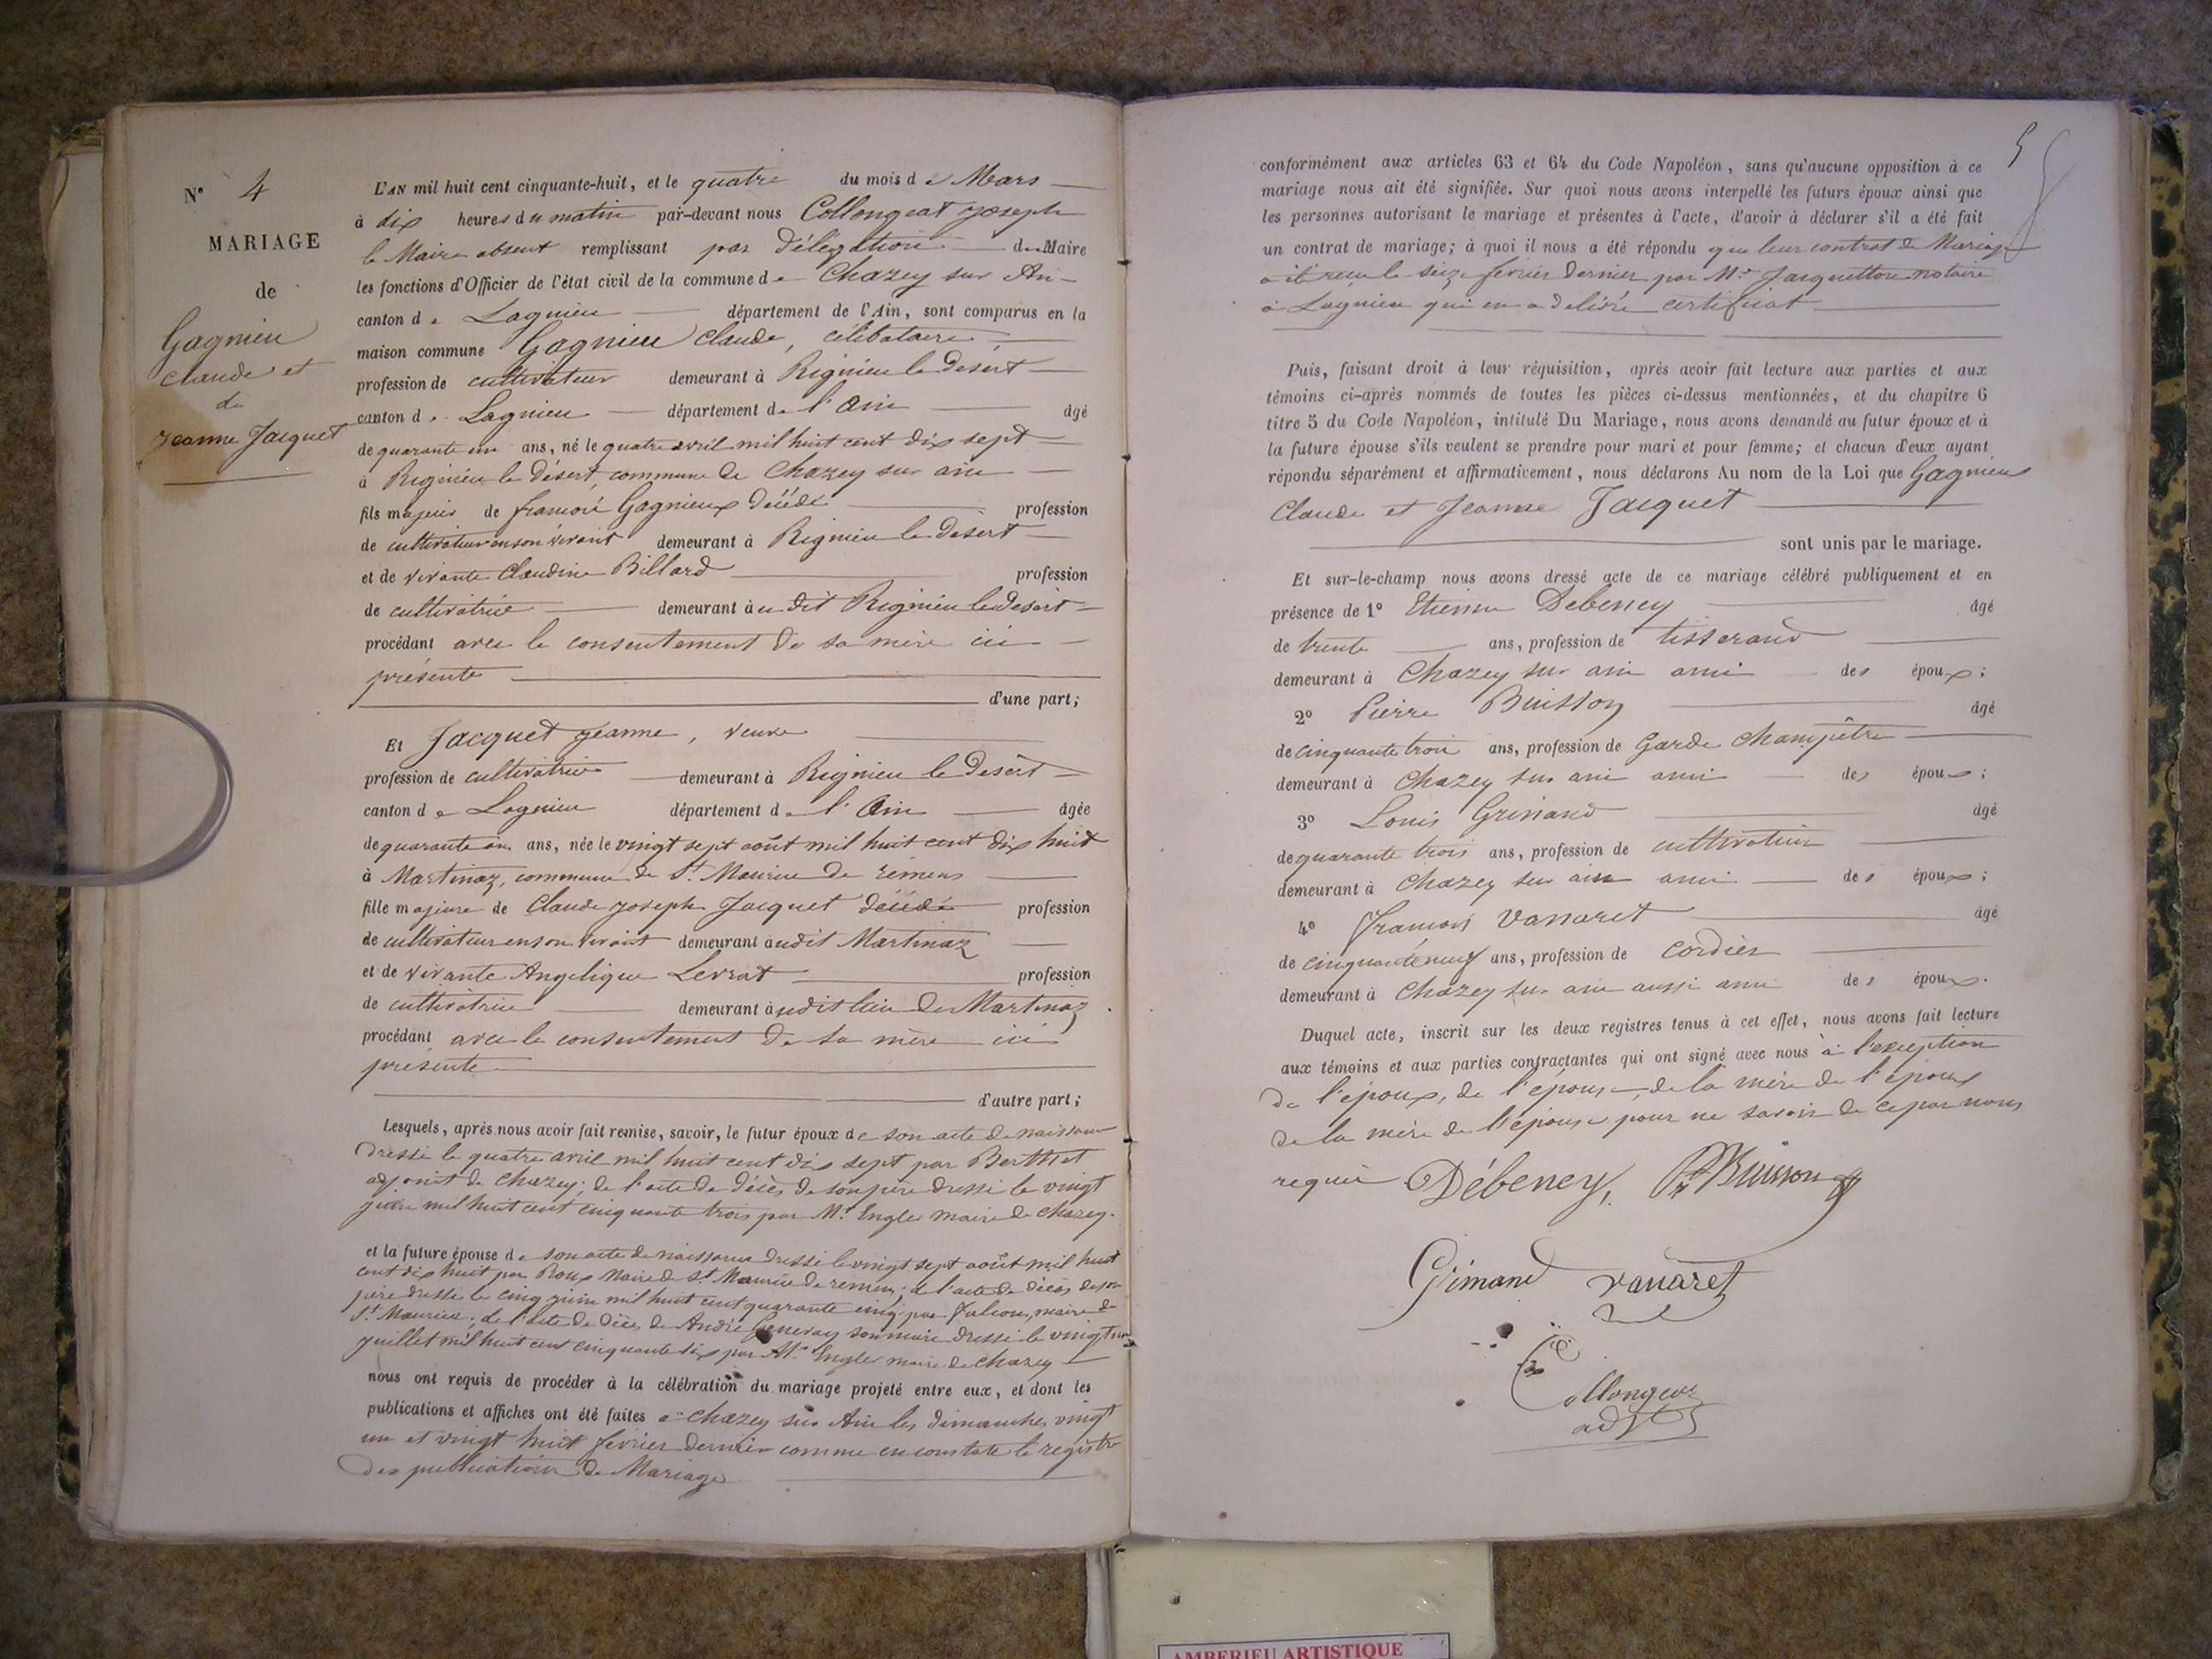 N° 4
MARIAGE
de
Gagnieu
Claude et
de
Jeanne Jacquet
L'AN mil huit cent cinquante-huit, et le quatre du mois de Mars
à dix heures du matin par-devant nous Collongeat Joseph
le Maire absent remplissant par délégation du Maire
les fonctions d'Officier de l'état civil de la commune de Chazey sur Ain
canton de Lagnieu département de l'Ain, sont comparus en la
maison commune Gagnieu Claude, célibataire,
profession de cultivateur demeurant à Rignieu le Désert
canton de Lagnieu département de l'Ain âgé
de quarante un ans, né le quatre avril mil huit cent dix sept
à Rignieu le Désert, commune de Chazey sur ain
fils majeur de françois Gagnieux décédé profession
de cultivateur en son vivant demeurant à Rignieu le Désert
et de vivante Claudine Billard profession
de cultivatrice demeurant au dit Rignieu le desert
procédant avec le consentement de sa mère ici
présente
d'une part;
Et Jacquet Jeanne, veuve
profession de cultivatrice demeurant à Rignieu le Desert
canton de Lagnieu département de l'Ain âgée
de quarante ans, née le vingt sept août mil huit cent dix huit
à Martinaz, commune de St Maurice de rémens
fille majeure de Claude Joseph Jacquet décédé profession
de cultivateur en son vivant demeurant audit Martinaz
et de vivante Angelique Levrat profession
de cultivatrice demeurant audit lieu de Martinaz
procédant avec le consentement de sa mère ici
présente
d'autre part;
Lesquels, après nous avoir fait remise, savoir, le futur époux de son acte de naissance
dressé le quatre avril mil huit cent dix sept par Berthet
adjoint de Chazey; de l'acte de décès de son père dressé le vingt
juin mil huit cent cinquante trois par Mr Engler maire de Chazey.
et la future épouse de son acte de naissance dressé le vingt sept août mil huit
cent dix huit par Roux Maire de St Maurice de remens; de l'acte de décès de son
père dressé le cinq juin mil huit cent quarante cinq par Falcon, maire de
St Maurice; de l'acte de décès de André Genevay son mari dressé le vingt un
juillet mil huit cent cinquante six par Mr Engler maire de Chazey
nous ont requis de procéder à la célébration du mariage projeté entre eux, et dont les
publications et affiches ont été faites à Chazey sur Ain les dimanches vingt
un et vingt huit février dernier comme en constate le registre
des publications de Mariage
5
conformément aux articles 63 et 64 du Code Napoléon, sans qu'aucune opposition à ce
mariage nous ait été signifiée. Sur quoi nous avons interpellé les futurs époux ainsi que
les personnes autorisant le mariage et présentes à l'acte, d'avoir à déclarer s'il a été fait
un contrat de mariage; à quoi il nous a été répondu que leur contrat de Mariage
a été reçu le seize fevrier dernier par Mr Jacquetton notaire
à Lagnieu qui en a delivré certificat
Puis, faisant droit à leur réquisition, après avoir fait lecture aux parties et aux
témoins ci-après nommés de toutes les pièces ci-dessus mentionnées, et du chapitre 6
titre 5 du Code Napoléon, intitulé Du Mariage, nous avons demandé au futur époux et à
la future épouse s'ils veulent se prendre pour mari et pour femme; et chacun d'eux ayant
répondu séparément et affirmativement, nous déclarons Au nom de la Loi que Gagnieu
Claude et Jeanne Jacquet
sont unis par le mariage.
Et sur-le-champ nous avons dressé acte de ce mariage célébré publiquement et en
présence de 1° Etienne Debeney âgé
de trente ans, profession de tisserand
demeurant à Chazey sur ain ami des époux;
2° Pierre Buisson âgé
de cinquante trois ans, profession de Garde Champêtre
demeurant à Chazey sur ain ami des époux;
3° Louis Grimand âgé
de quarante trois ans, profession de cultivateur
demeurant à Chazey sur ain ami des époux;
4° François Vanaret âgé
de cinquante neuf ans, profession de cordier
demeurant à Chazey sur ain aussi ami des époux.
Duquel acte, inscrit sur les deux registres tenus à cet effet, nous avons fait lecture
aux témoins et aux parties contractantes qui ont signé avec nous à l'exception
de l'époux, de l'épouse, de la mère de l'époux
de la mère de l'épouse pour ne savoir de ce par nous
requis Débeney, Pre Buisson
Gimand vanaret
Collongeat
adjt
AMBERIEU ARTISTIQUE